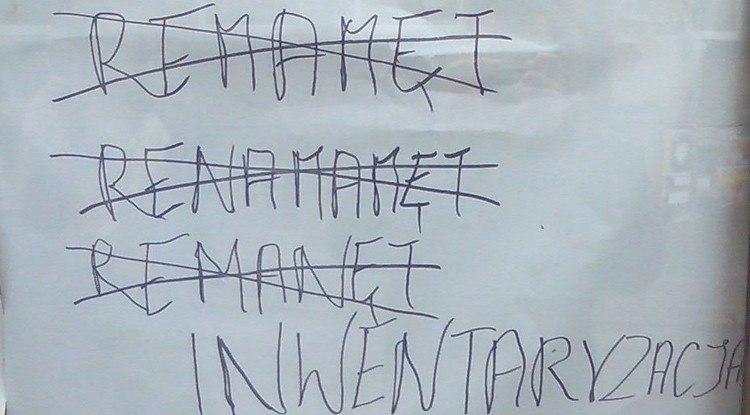 REMAMĘT
RENAMAMĘT
REMANĘT
INWENTARYZACJA